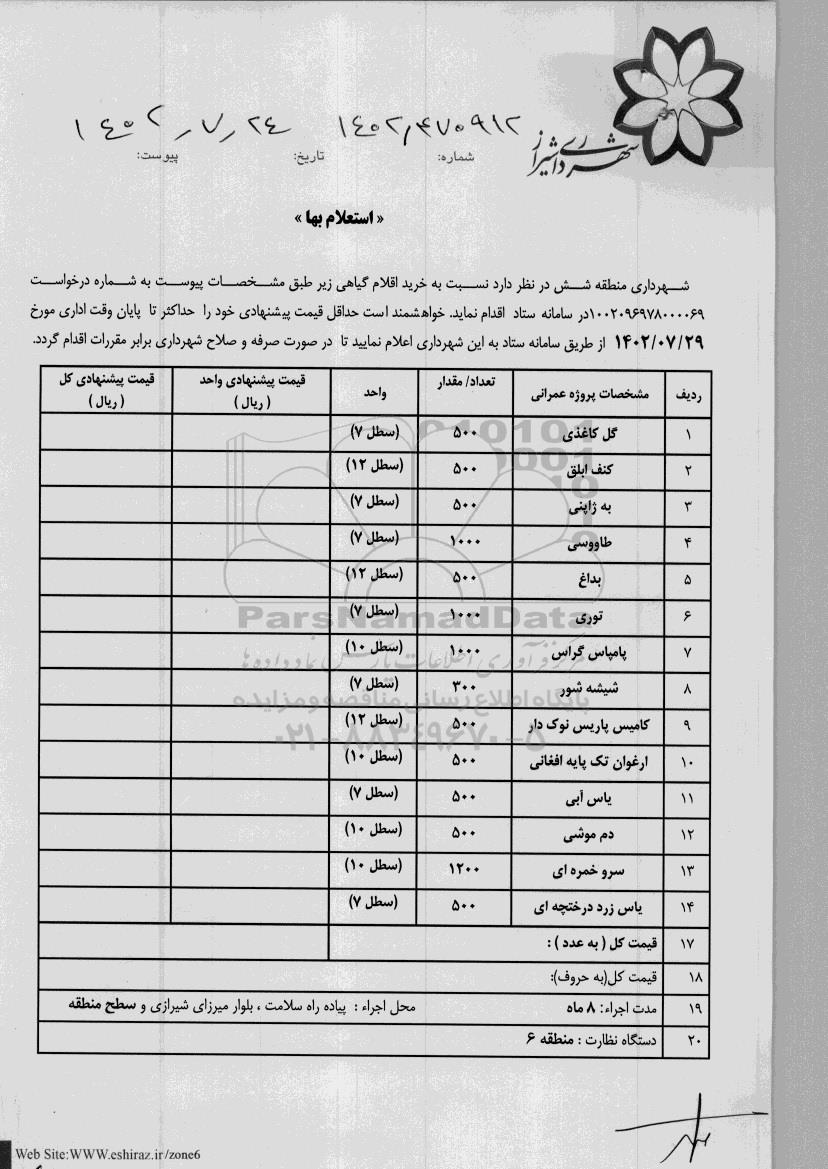 شهرداری شیراز
۱۴۰۲/۷/۲۴ ۱۴۰۲/۴۷۰۹۱۲
شماره: تاریخ: پیوست:
« استعلام بها »
شهرداری منطقه شش در نظر دارد نسبت به خرید اقلام گیاهی زیر طبق مشخصات پیوست به شماره درخواست
۱۰۰۲۰۹۶۹۷۸۰۰۰۰۶۹در سامانه ستاد اقدام نماید. خواهشمند است حداقل قیمت پیشنهادی خود را حداکثر تا پایان وقت اداری مورخ
۱۴۰۲/۰۷/۲۹ از طریق سامانه ستاد به این شهرداری اعلام نمایید تا در صورت صرفه و صلاح شهرداری برابر مقررات اقدام گردد.
ردیف مشخصات پروژه عمرانی تعداد/ مقدار واحد قیمت پیشنهادی واحد ( ریال ) قیمت پیشنهادی کل ( ریال )
۱ گل کاغذی ۵۰۰ (سطل ۷)
۲ کنف ابلق ۵۰۰ (سطل ۱۲)
۳ به ژاپنی ۵۰۰ (سطل ۷)
۴ طاووسی ۱۰۰۰ (سطل ۷)
۵ بداغ ۵۰۰ (سطل ۱۲)
۶ توری ۱۰۰۰ (سطل ۷)
۷ پامپاس گراس ۱۰۰۰ (سطل ۱۰)
۸ شیشه شور ۳۰۰ (سطل ۷)
۹ کامیس پاریس نوک دار ۵۰۰ (سطل ۱۲)
۱۰ ارغوان تک پایه افغانی ۵۰۰ (سطل ۱۰)
۱۱ یاس آبی ۵۰۰ (سطل ۷)
۱۲ دم موشی ۵۰۰ (سطل ۱۰)
۱۳ سرو خمره ای ۱۲۰۰ (سطل ۱۰)
۱۴ یاس زرد درختچه ای ۵۰۰ (سطل ۷)
۱۷ قیمت کل ( به عدد ) :
۱۸ قیمت کل(به حروف):
۱۹ مدت اجراء: ۸ ماه محل اجراء : پیاده راه سلامت ، بلوار میرزای شیرازی و سطح منطقه
۲۰ دستگاه نظارت : منطقه ۶
ParsNamadData
مرکز فرآوری اطلاعات پارس نماد داده ها
پایگاه اطلاع رسانی مناقصه و مزایده
۰۲۱-۸۸۳۴۹۶۷۰-۵
Web Site:WWW.eshiraz.ir/zone6